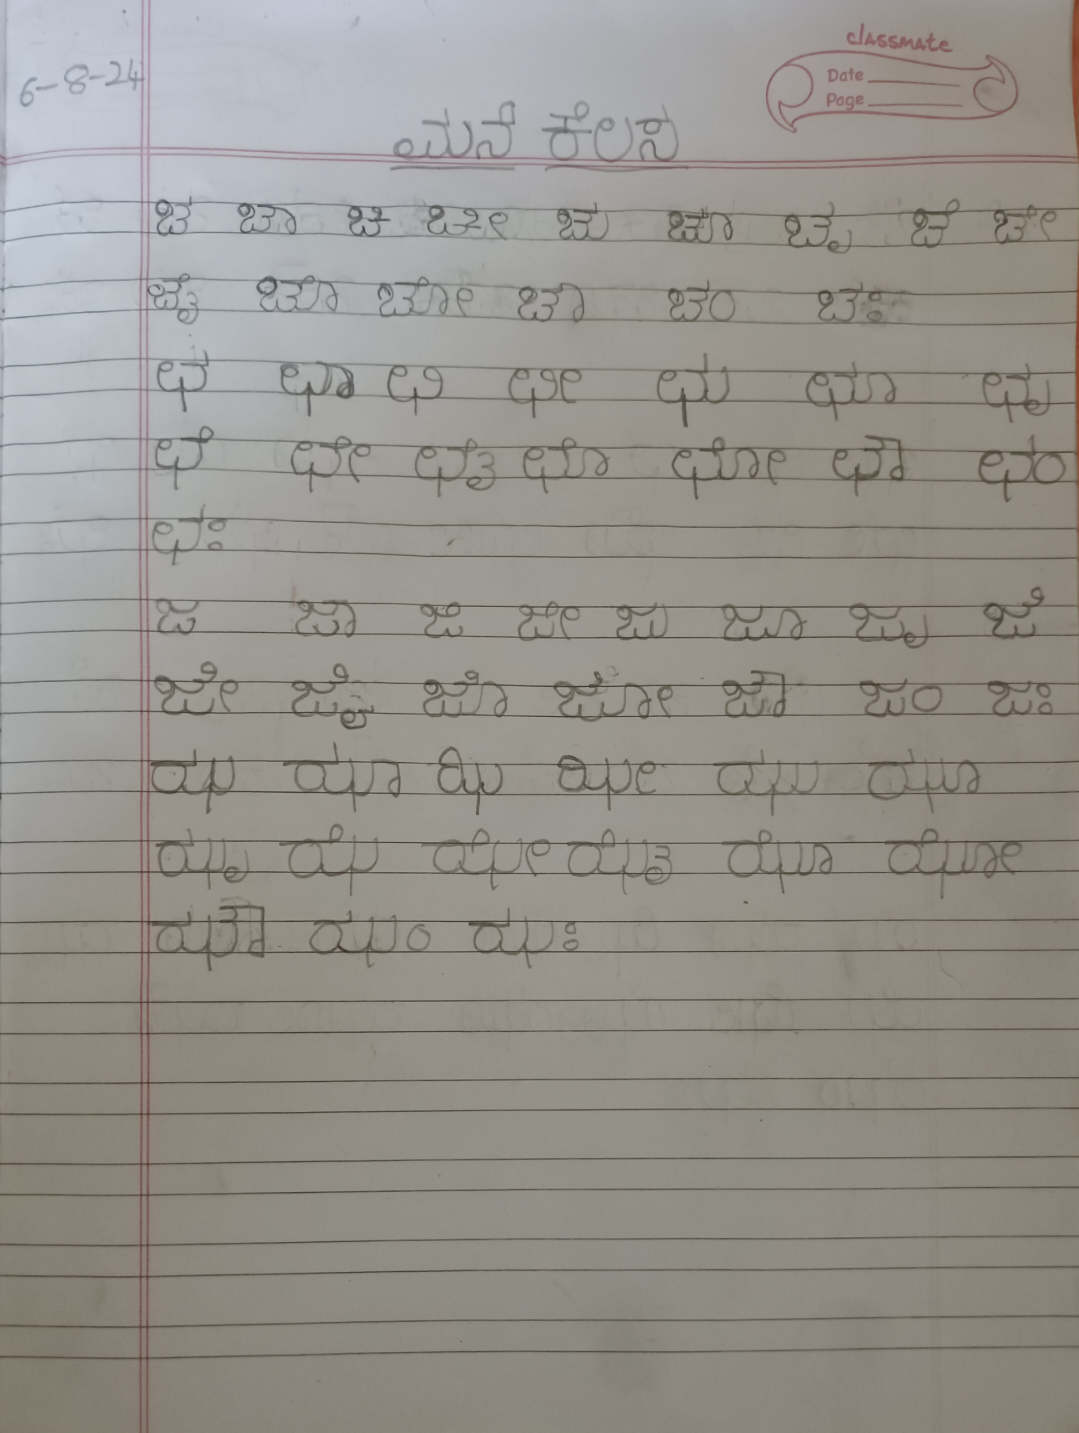 classmate
Date
Page
6-8-24
ಮನೆ ಕೆಲಸ
ಚ ಚಾ ಚಿ ಚೀ ಚು ಚೂ ಚೃ ಚೆ ಚೇ
ಚೈ ಚೊ ಚೋ ಚೌ ಚಂ ಚಃ
ಛ ಛಾ ಛಿ ಛೀ ಛು ಛೂ ಛೃ
ಛೆ ಛೇ ಛೈ ಛೊ ಛೋ ಛೌ ಛಂ
ಛಃ
ಜ ಜಾ ಜಿ ಜೀ ಜು ಜೂ ಜೃ ಜೆ
ಜೇ ಜೈ ಜೊ ಜೋ ಜೌ ಜಂ ಜಃ
ಝ ಝಾ ಝಿ ಝೀ ಝು ಝೂ
ಝೃ ಝೆ ಝೇ ಝೈ ಝೊ ಝೋ
ಝೌ ಝಂ ಝಃ